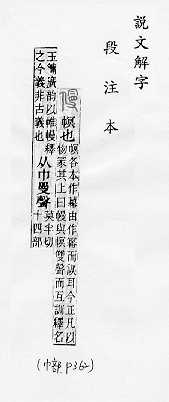 說文解字
段注本
幔
幎也
幎各本作幕由作冪而誤耳今正凡以
物冡其上曰幔與幎雙聲而互訓釋名
玉篇廣韵以帷幔釋
之今義非古義也
从巾曼聲
莫半切
十四部
(巾部 P362)